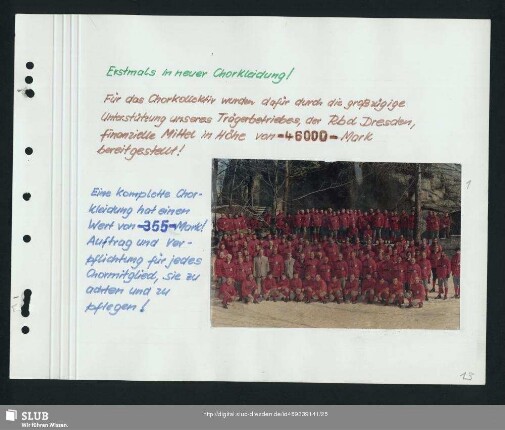 Erstmals in neuer Chorkleidung!
Für das Chorkollektiv wurden dafür durch die großzügige
Unterstützung unseres Trägerbetriebes, der Rbd Dresden,
finanzielle Mittel in Höhe von -46000- Mark
bereitgestellt!
Eine komplette Chor-
kleidung hat einen
Wert von -355- Mark!
Auftrag und Ver-
pflichtung für jedes
Chormitglied, sie zu
achten und zu
pflegen!
1
15
SLUB
Wir führen Wissen.